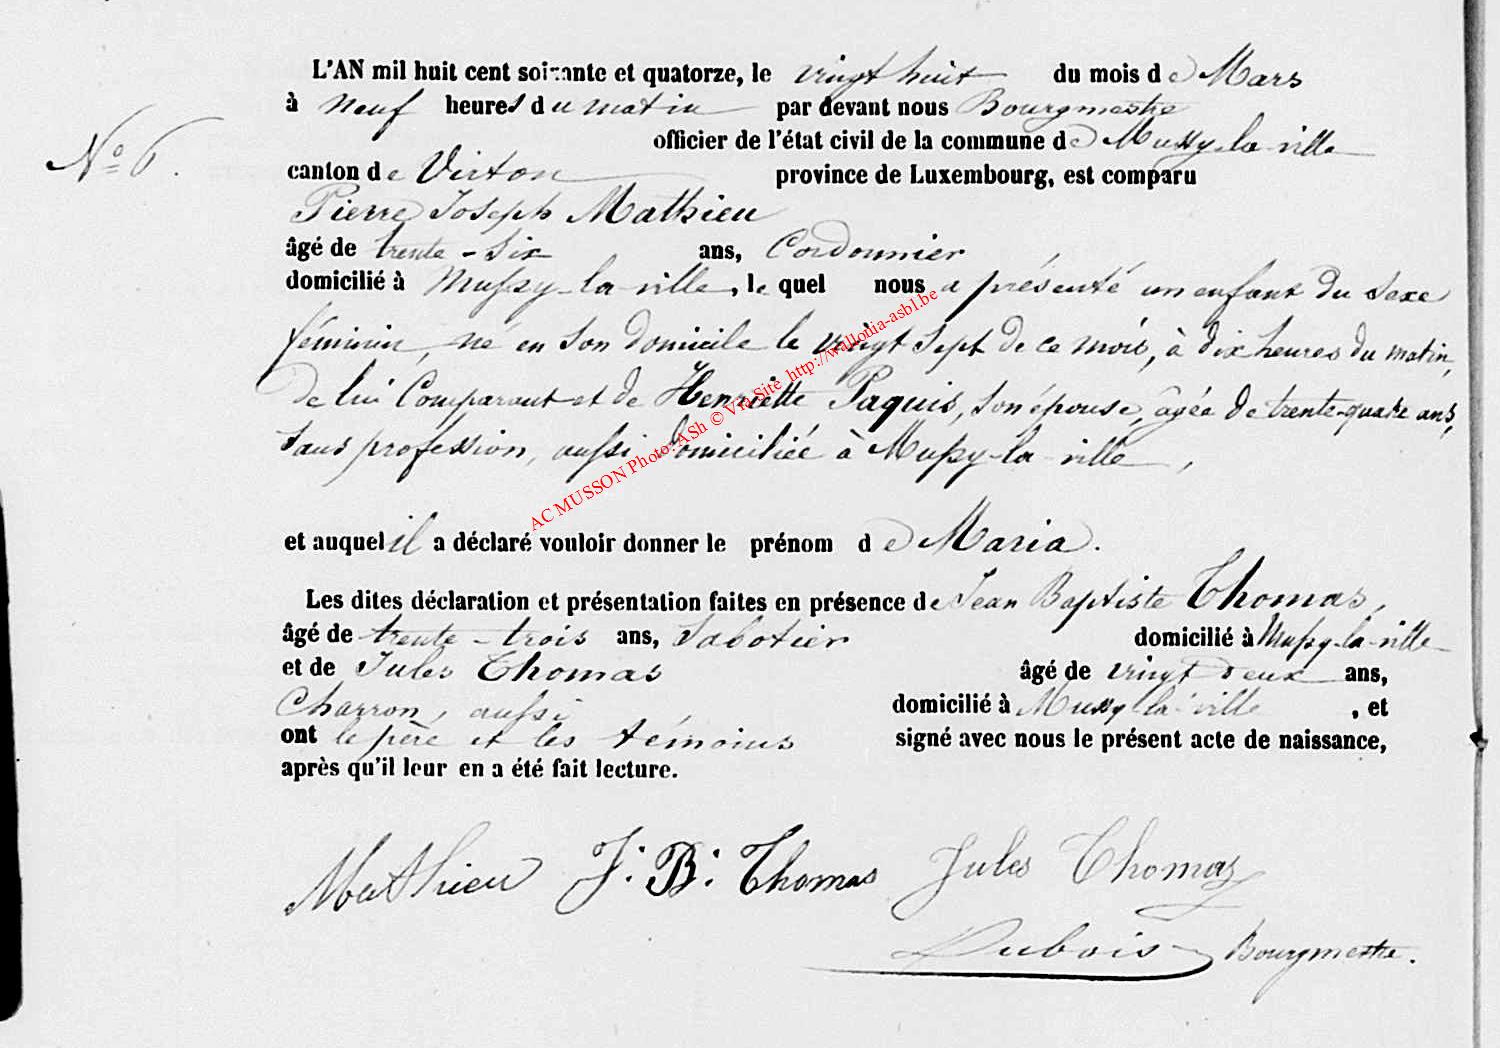 L'AN mil huit cent soixante et quatorze, le vingt huit du mois de Mars
à neuf heures du matin par devant nous Bourgmestre
officier de l'état civil de la commune de Mussy-la-ville
N° 6.
canton de Virton province de Luxembourg, est comparu
Pierre Joseph Mathieu
âgé de trente-six ans, Cordonnier
domicilié à Mussy-la-ville, le quel nous a présenté un enfant du sexe
féminin, né en son domicile le vingt sept de ce mois, à dix heures du matin,
de lui Comparant et de Henriette Paquis, son épouse, agée de trente-quatre ans,
sans profession, aussi domiciliée à Mussy-la-ville,
AC MUSSON Photo: ASh © Via Site http://wallonia-asbl.be
et auquel il a déclaré vouloir donner le prénom de Maria.
Les dites déclaration et présentation faites en présence de Jean Baptiste Thomas,
âgé de trente-trois ans, Sabotier domicilié à Mussy-la-ville
et de Jules Thomas âgé de vingt deux ans,
Charron, aussi domicilié à Mussy-la-ville, et
ont le père et les témoins signé avec nous le présent acte de naissance,
après qu'il leur en a été fait lecture.
Mathieu J. B. Thomas Jules Thomas
Dubois Bourgmestre.